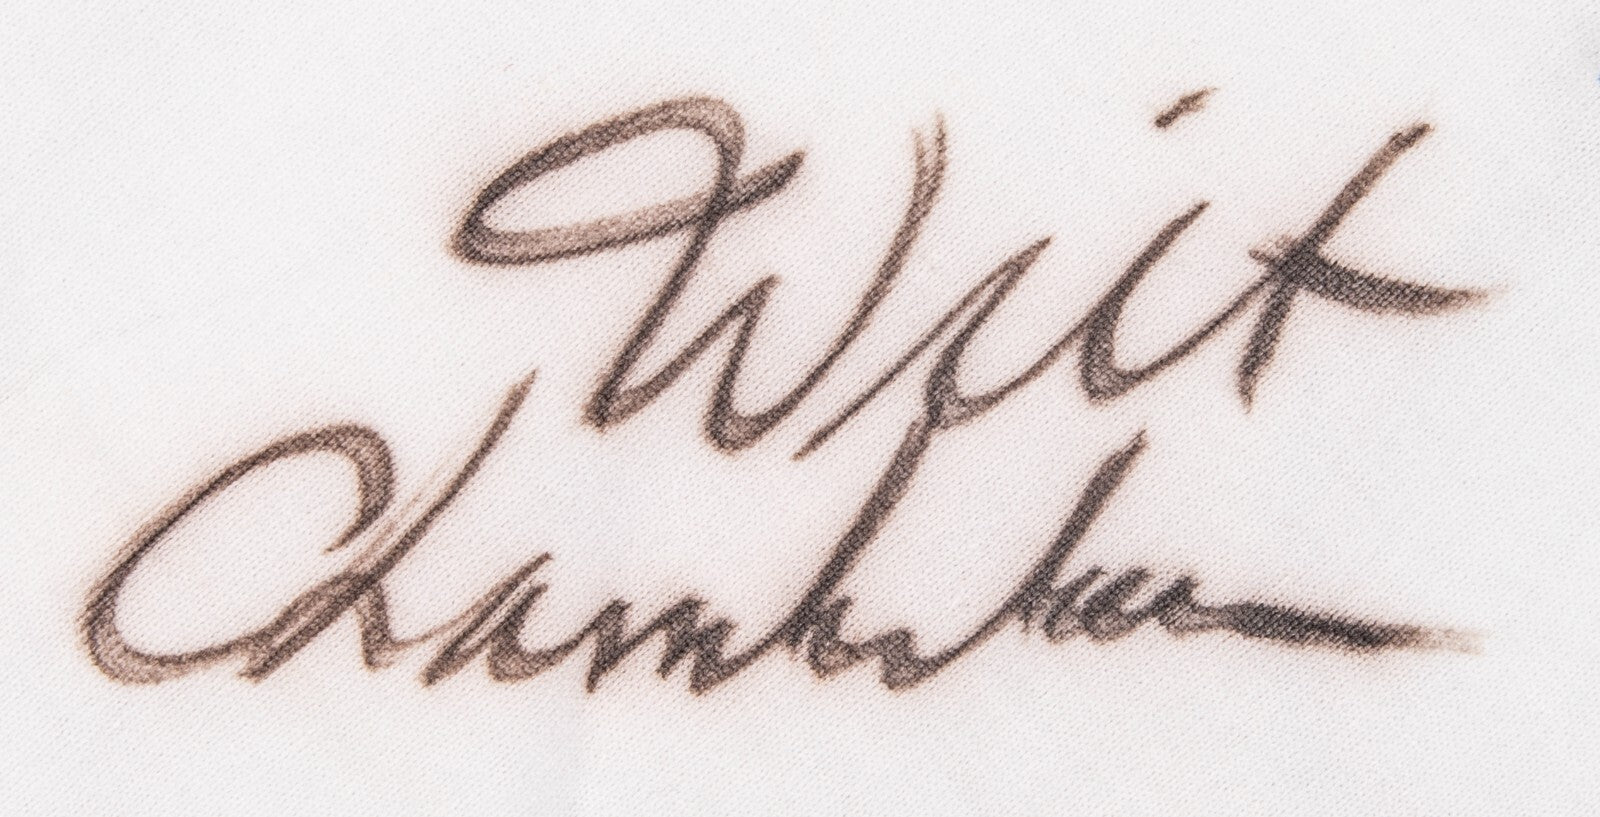 Wilt
Chamberlain